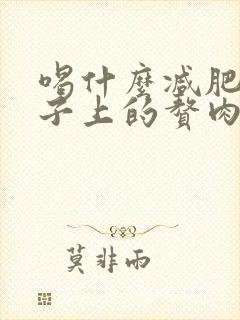 喝什麼減肥
子上的贅肉
莫非雨